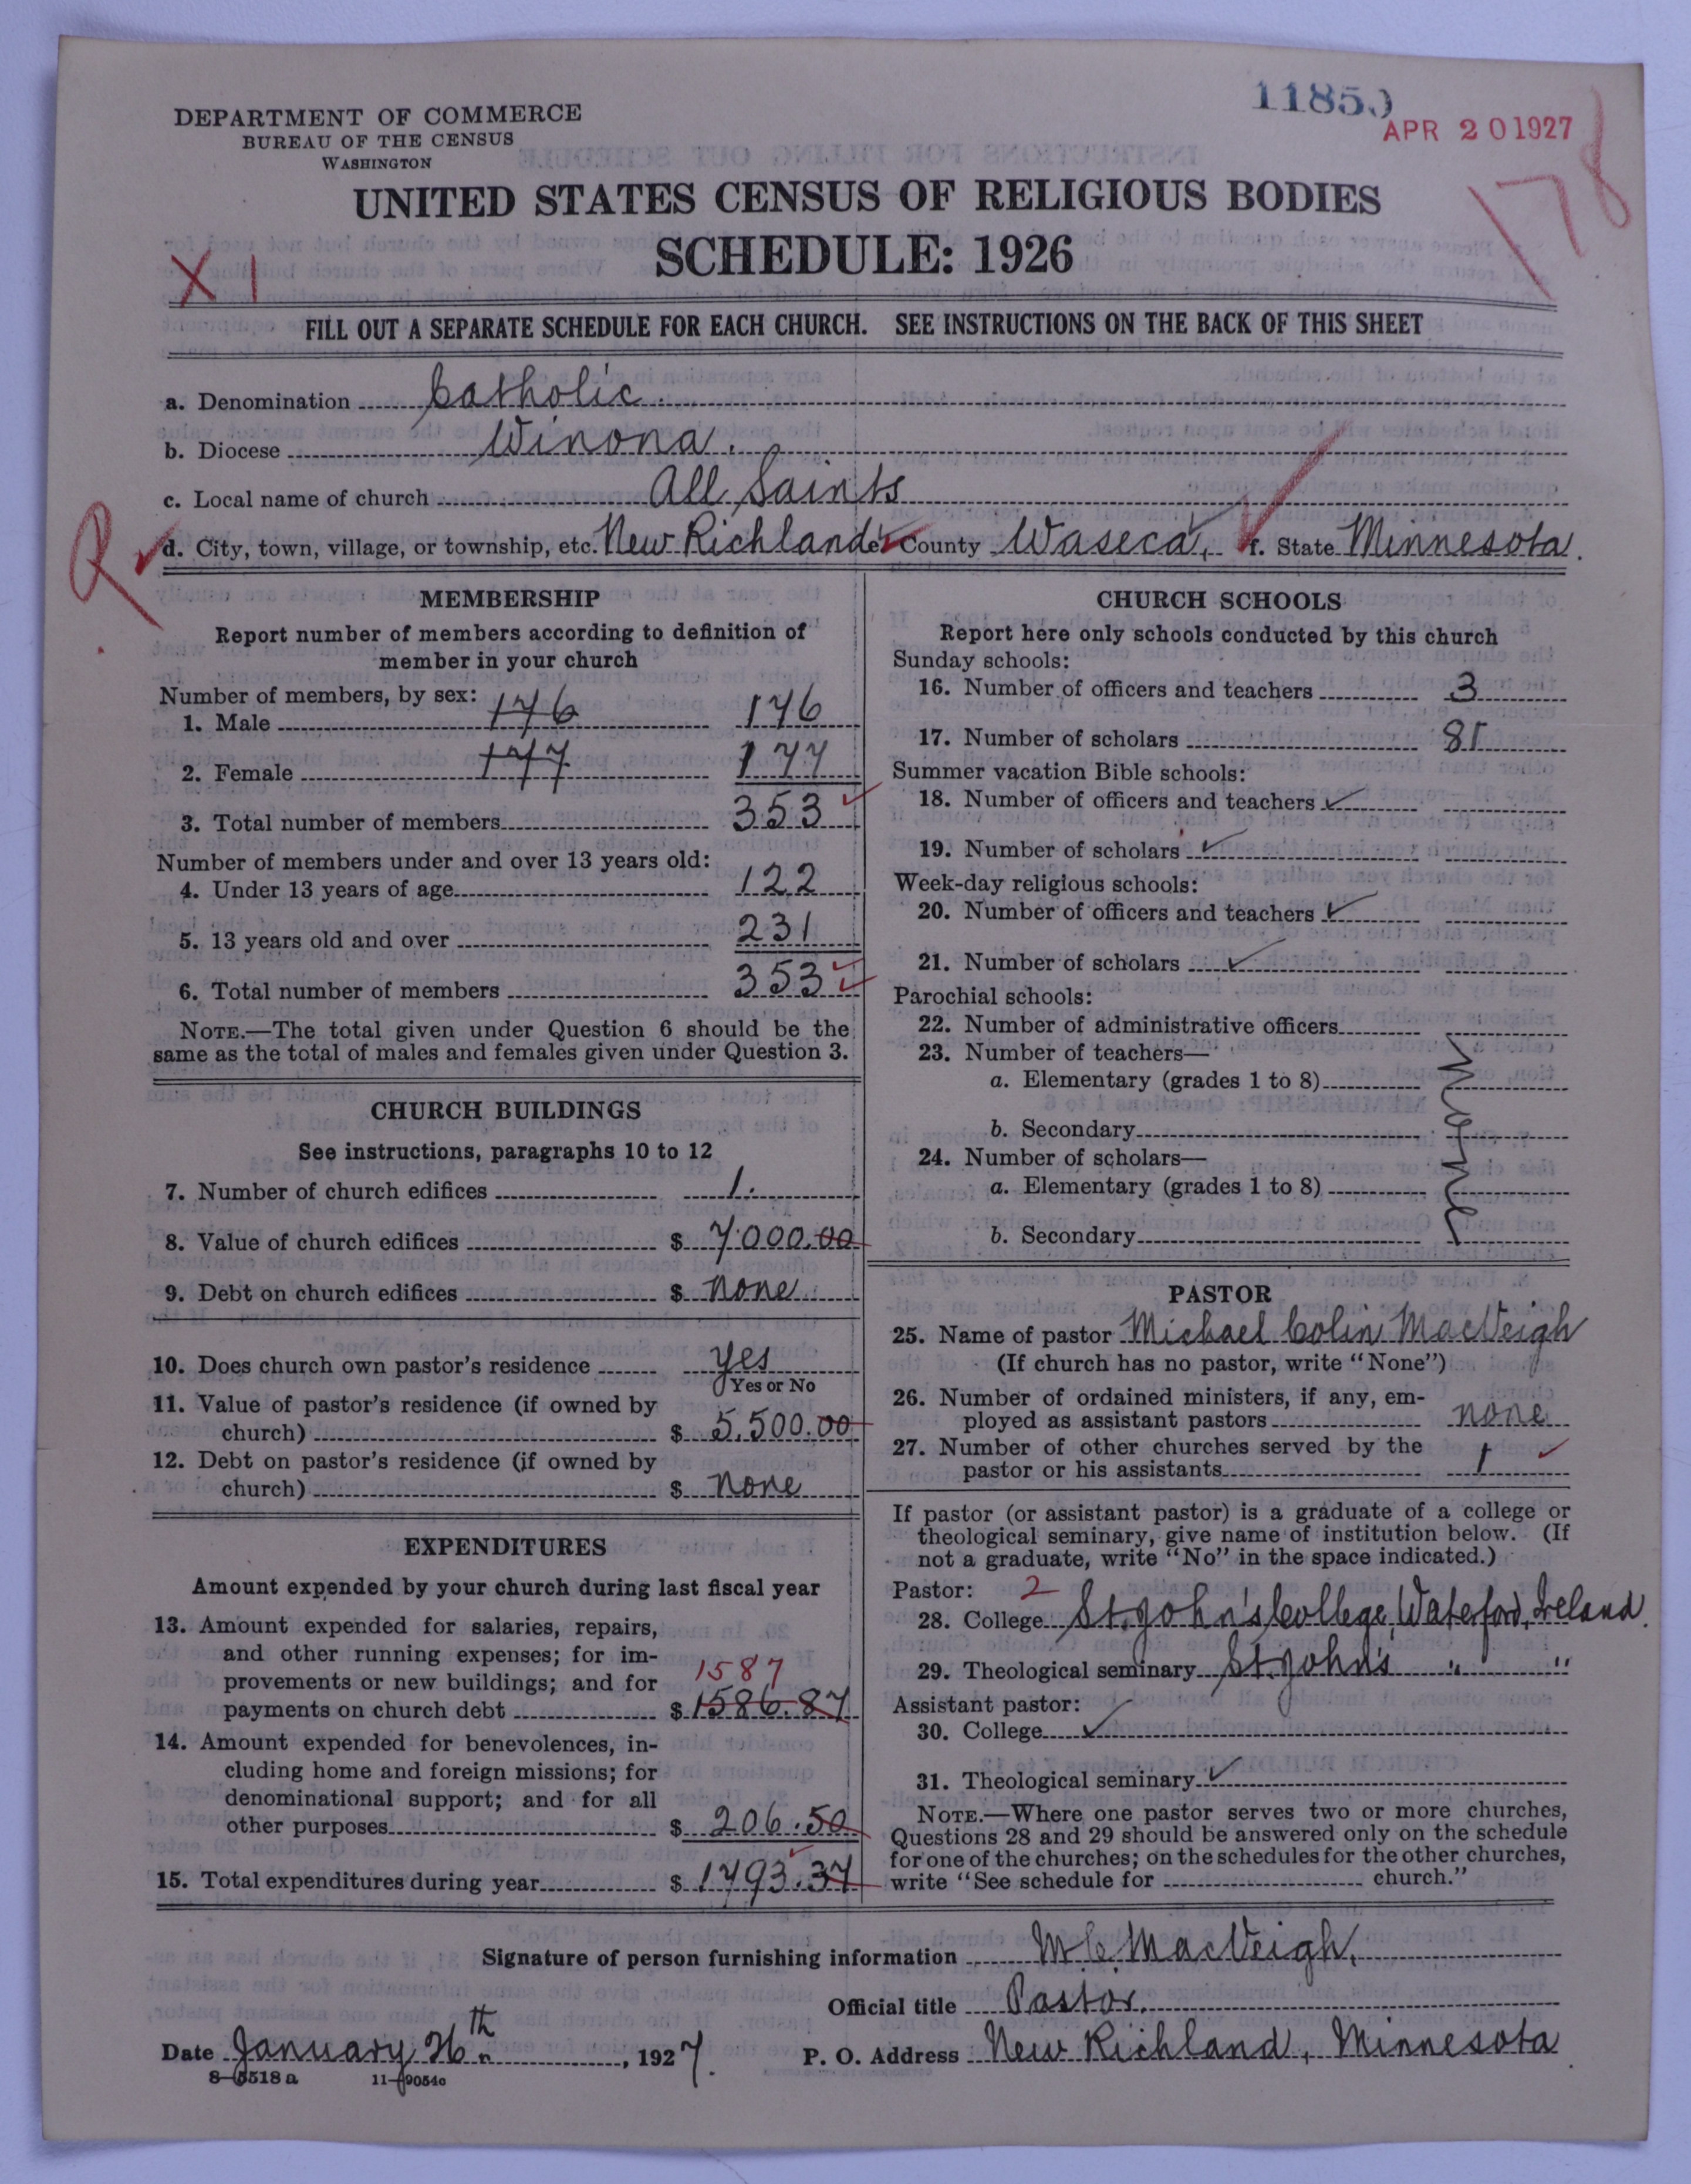 11850
APR 20 1927
178
DEPARTMENT OF COMMERCE
BUREAU OF THE CENSUS
WASHINGTON
UNITED STATES CENSUS OF RELIGIOUS BODIES
SCHEDULE: 1926
X 1
FILL OUT A SEPARATE SCHEDULE FOR EACH CHURCH. SEE INSTRUCTIONS ON THE BACK OF THIS SHEET
a. Denomination Catholic.
b. Diocese Winona.
c. Local name of church All Saints
R
d. City, town, village, or township, etc. New Richland e. County Waseca, f. State Minnesota.
MEMBERSHIP
Report number of members according to definition of
member in your church
Number of members, by sex:
1. Male 176 176
2. Female 177 177
3. Total number of members 353
Number of members under and over 13 years old:
4. Under 13 years of age 122
5. 13 years old and over 231
6. Total number of members 353
NOTE.—The total given under Question 6 should be the
same as the total of males and females given under Question 3.
CHURCH BUILDINGS
See instructions, paragraphs 10 to 12
7. Number of church edifices 1.
8. Value of church edifices $ 7000.00
9. Debt on church edifices $ none
10. Does church own pastor's residence yes
Yes or No
11. Value of pastor's residence (if owned by
church) $ 5,500.00
12. Debt on pastor's residence (if owned by
church) $ none
EXPENDITURES
Amount expended by your church during last fiscal year
13. Amount expended for salaries, repairs,
and other running expenses; for im-
provements or new buildings; and for
1587
payments on church debt $ 1586.87
14. Amount expended for benevolences, in-
cluding home and foreign missions; for
denominational support; and for all
other purposes $ 206.50
15. Total expenditures during year $ 1793.37
CHURCH SCHOOLS
Report here only schools conducted by this church
Sunday schools:
16. Number of officers and teachers 3
17. Number of scholars
Summer vacation Bible schools:
18. Number of officers and teachers ✓
19. Number of scholars ✓
Week-day religious schools:
20. Number of officers and teachers ✓
21. Number of scholars ✓
Parochial schools:
22. Number of administrative officers
23. Number of teachers—
a. Elementary (grades 1 to 8)
b. Secondary
24. Number of scholars—
a. Elementary (grades 1 to 8)
b. Secondary
None
PASTOR
25. Name of pastor Michael Colin MacVeigh
(If church has no pastor, write "None")
26. Number of ordained ministers, if any, em-
ployed as assistant pastors none
27. Number of other churches served by the
pastor or his assistants 1
If pastor (or assistant pastor) is a graduate of a college or
theological seminary, give name of institution below. (If
not a graduate, write "No" in the space indicated.)
Pastor: 2
28. College St. John's College, Waterford, Ireland.
29. Theological seminary St. John's " "
Assistant pastor:
30. College ✓
31. Theological seminary ✓
NOTE.—Where one pastor serves two or more churches,
Questions 28 and 29 should be answered only on the schedule
for one of the churches; on the schedules for the other churches,
write "See schedule for church."
Signature of person furnishing information M. C. MacVeigh.
Official title Pastor.
Date January 26th, 1927. P. O. Address New Richland, Minnesota
8—5518 a 11—9054c